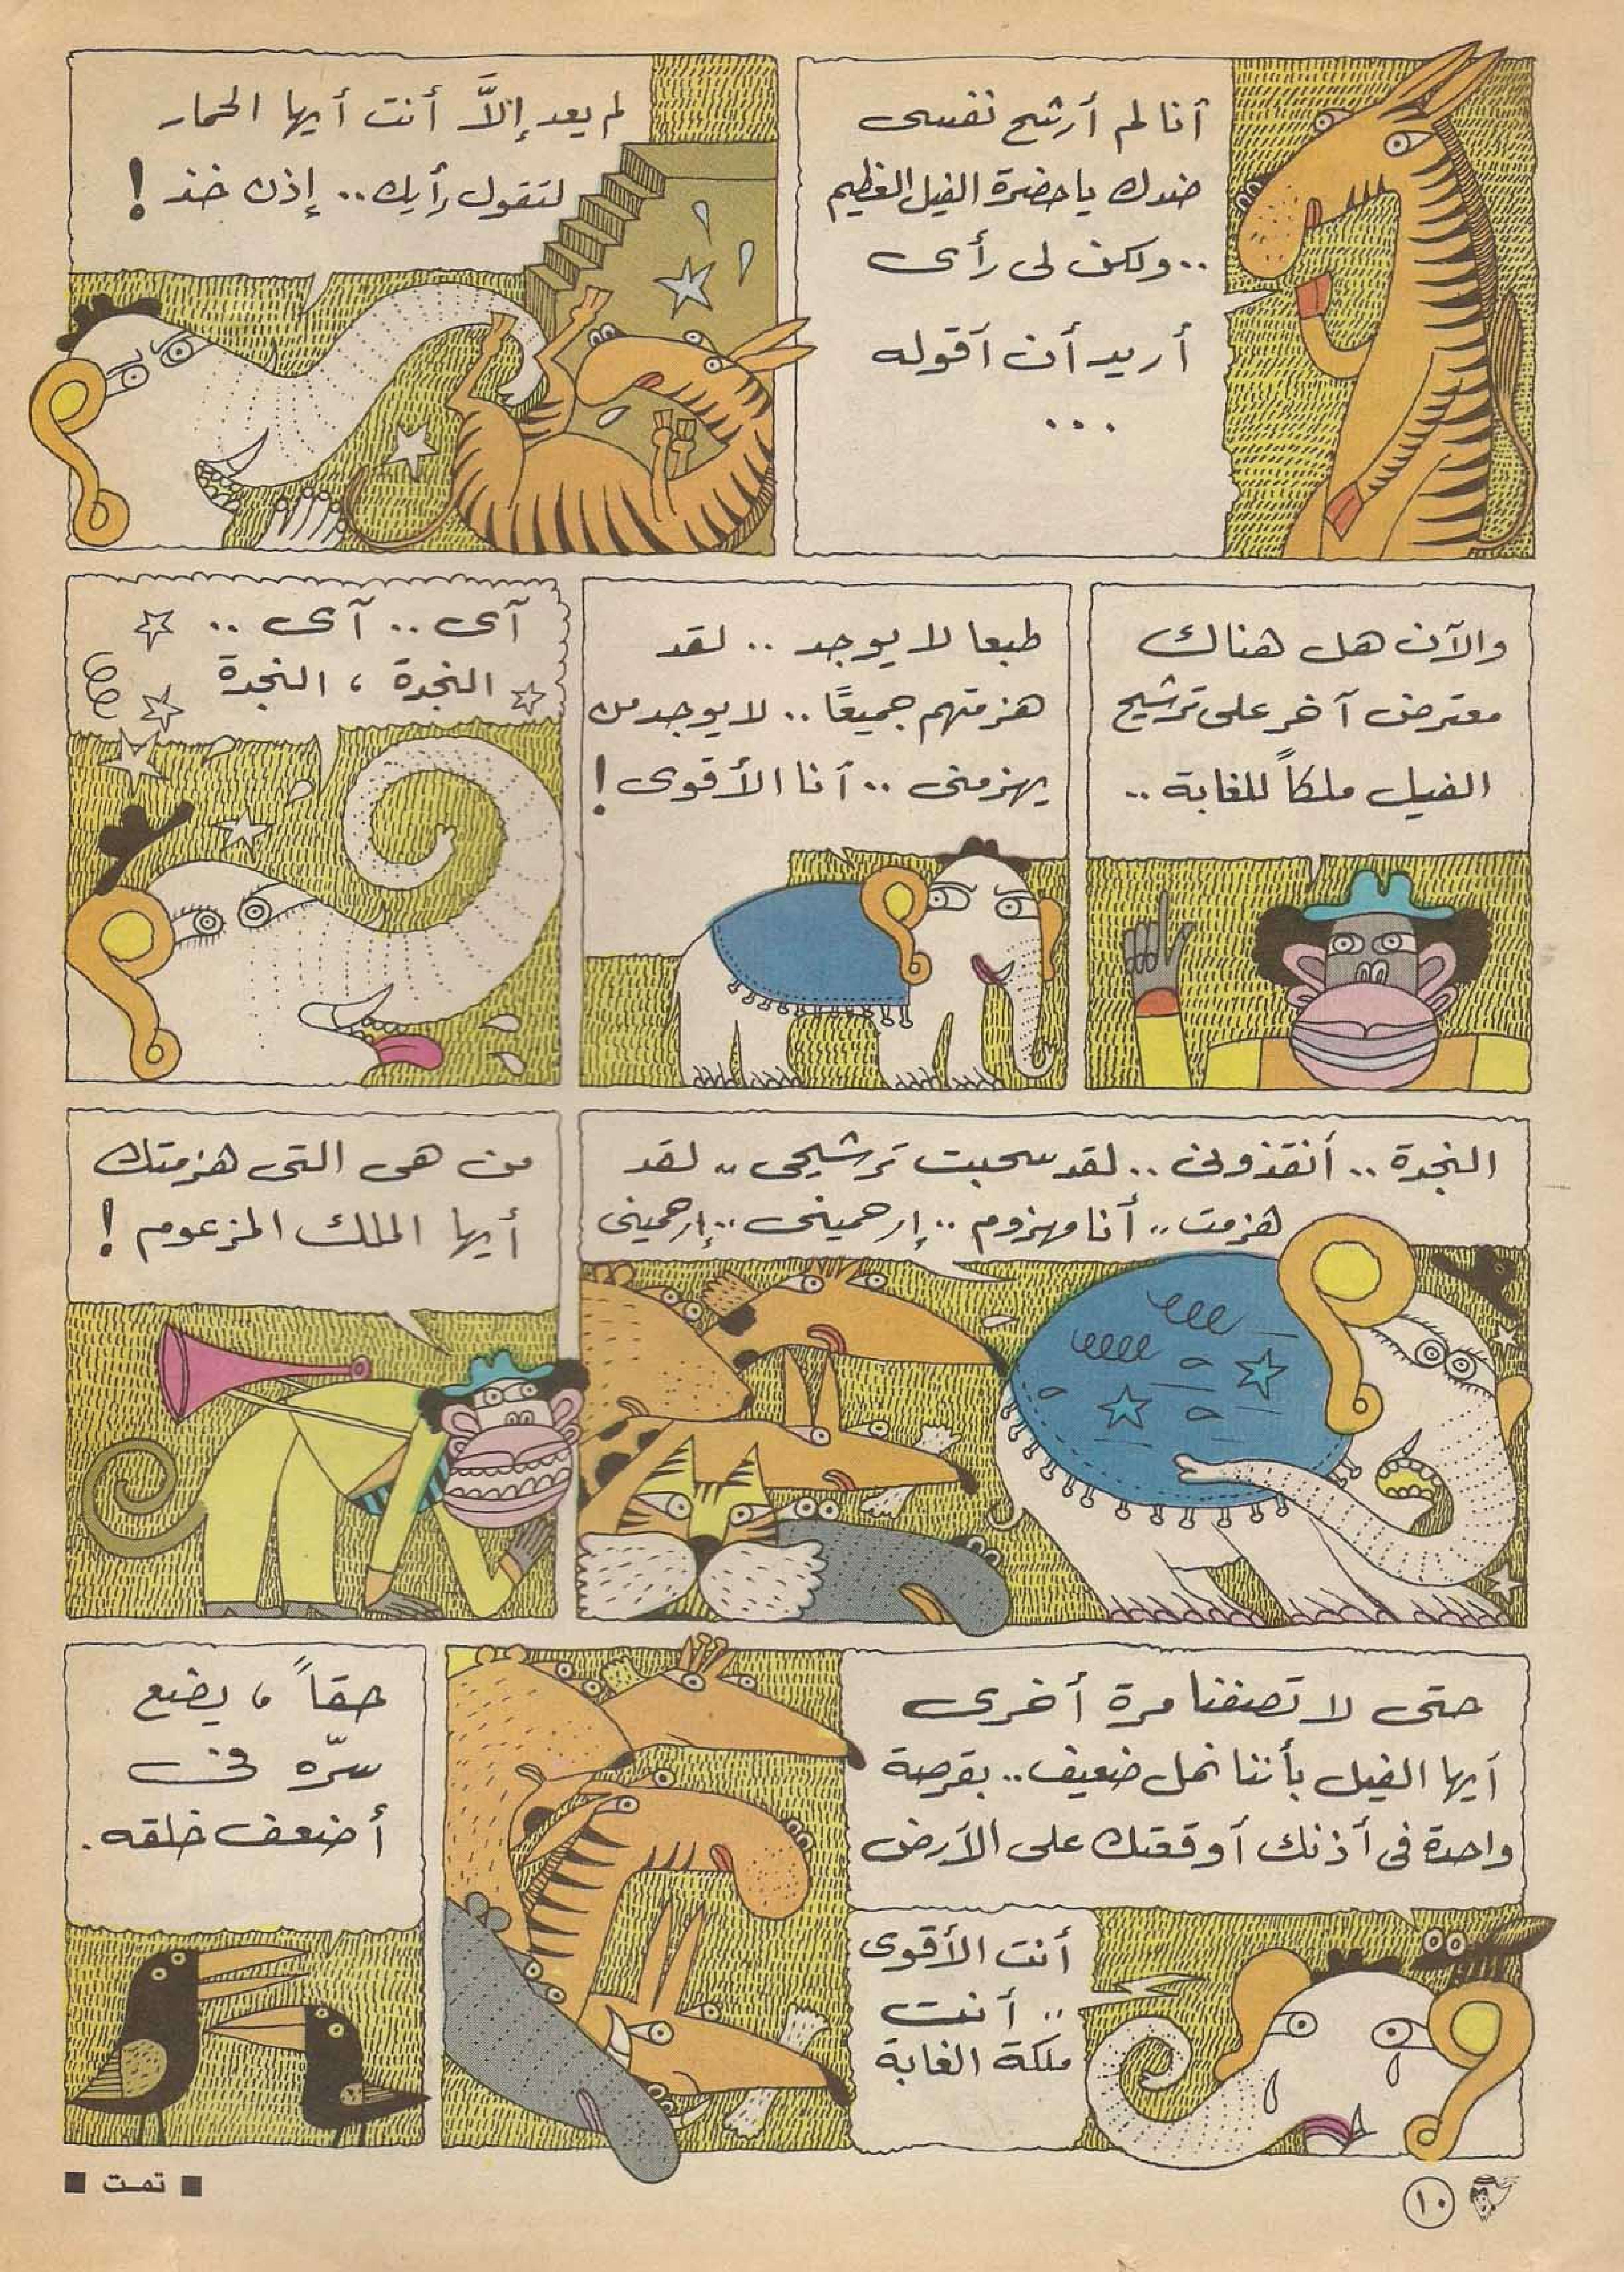 أنا لم أرشح نفسى
ضدك يا حضرة الفيل العظيم
..ولكن لى رأى
أريد أن أقوله
...
لم يعد إلاَّ أنت أيها الحمار
لتقول رأيك.. إذن خذ !
والآن هل هناك
معترض آخر على ترشيح
الفيل ملكاً للغابة ..
طبعا لا يوجد .. لقد
هزمتهم جميعًا .. لا يوجد من
يهزمنى .. أنا الأقوى !
آى .. آى ..
النجدة ، النجدة
النجدة .. أنقذونى .. لقد سحبت ترشيحى .. لقد
هزمت .. أنا مهزوم .. إرحمينى .. إرحمينى
من هى التى هزمتك
أيها الملك المزعوم !
حتى لا تصفنا مرة أخرى
أيها الفيل بأننا نمل ضعيف .. بقرصة
واحدة فى أذنك أوقعتك على الأرض
أنت الأقوى
.. أنت
ملكة الغابة
حقاً ، يضع
سرّه فى
أضعف خلقه .
١٠
■ تمت ■